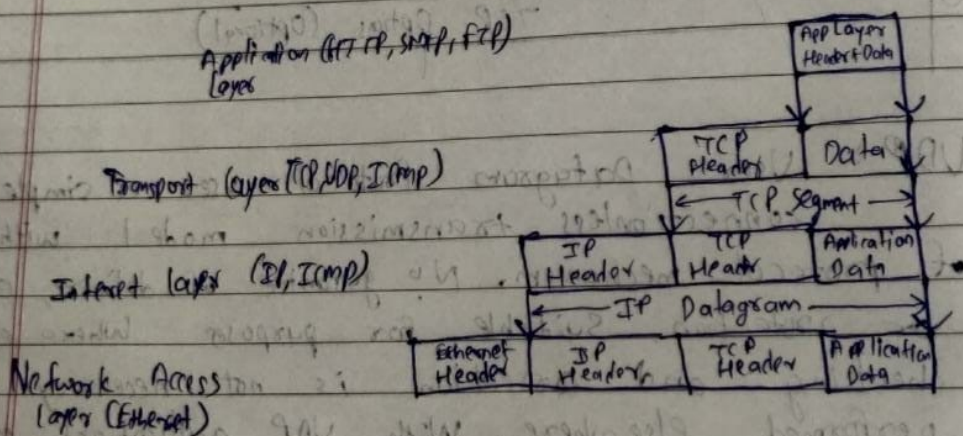 Application (HTTP, SMTP, FTP)
Layer
App Layer
Header+Data
Transport Layer (TCP, UDP, ICMP)
TCP
Header
Data
TCP Segment
Interet layer (IP, ICMP)
IP
Header
TCP
Headr
Application
Data
IP Datagram
Network Access
layer (Ethernet)
Ethernet
Header
IP
Header
TCP
Header
Application
Data